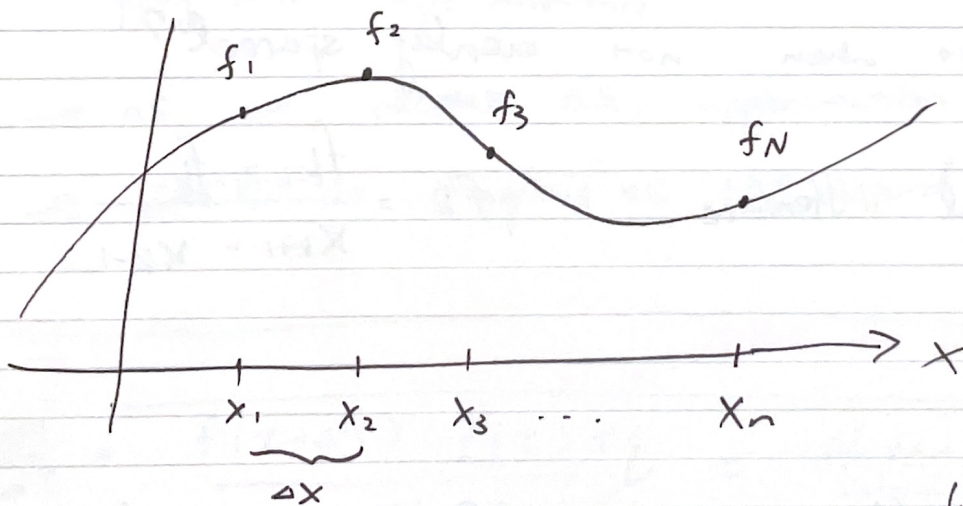 f₂
f₁
f₃
f_N
X
X₁ X₂ X₃ .... Xₙ
ΔX